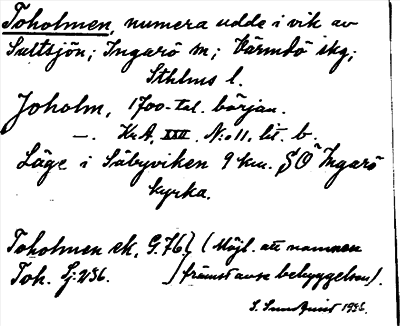 Toholmen, numera udde i vik av
Saltsjön; Ingarö sn; Värmdö skg;
Sthlms l.
Joholm, 1700-tal. början.
—. Kr.A, XXII. N:o 11, lit. b.
Läge i Säbyviken 9 km. SO Ingarö
kyrka.
Toholmen ek. G.76} (Möjl. att namnen
Toh. Sj: 236. } främst avse bebyggelsen).
S. Sundquist 1935.